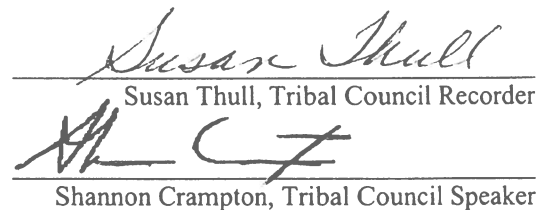 Susan Thull
Susan Thull, Tribal Council Recorder
Shannon Crampton, Tribal Council Speaker